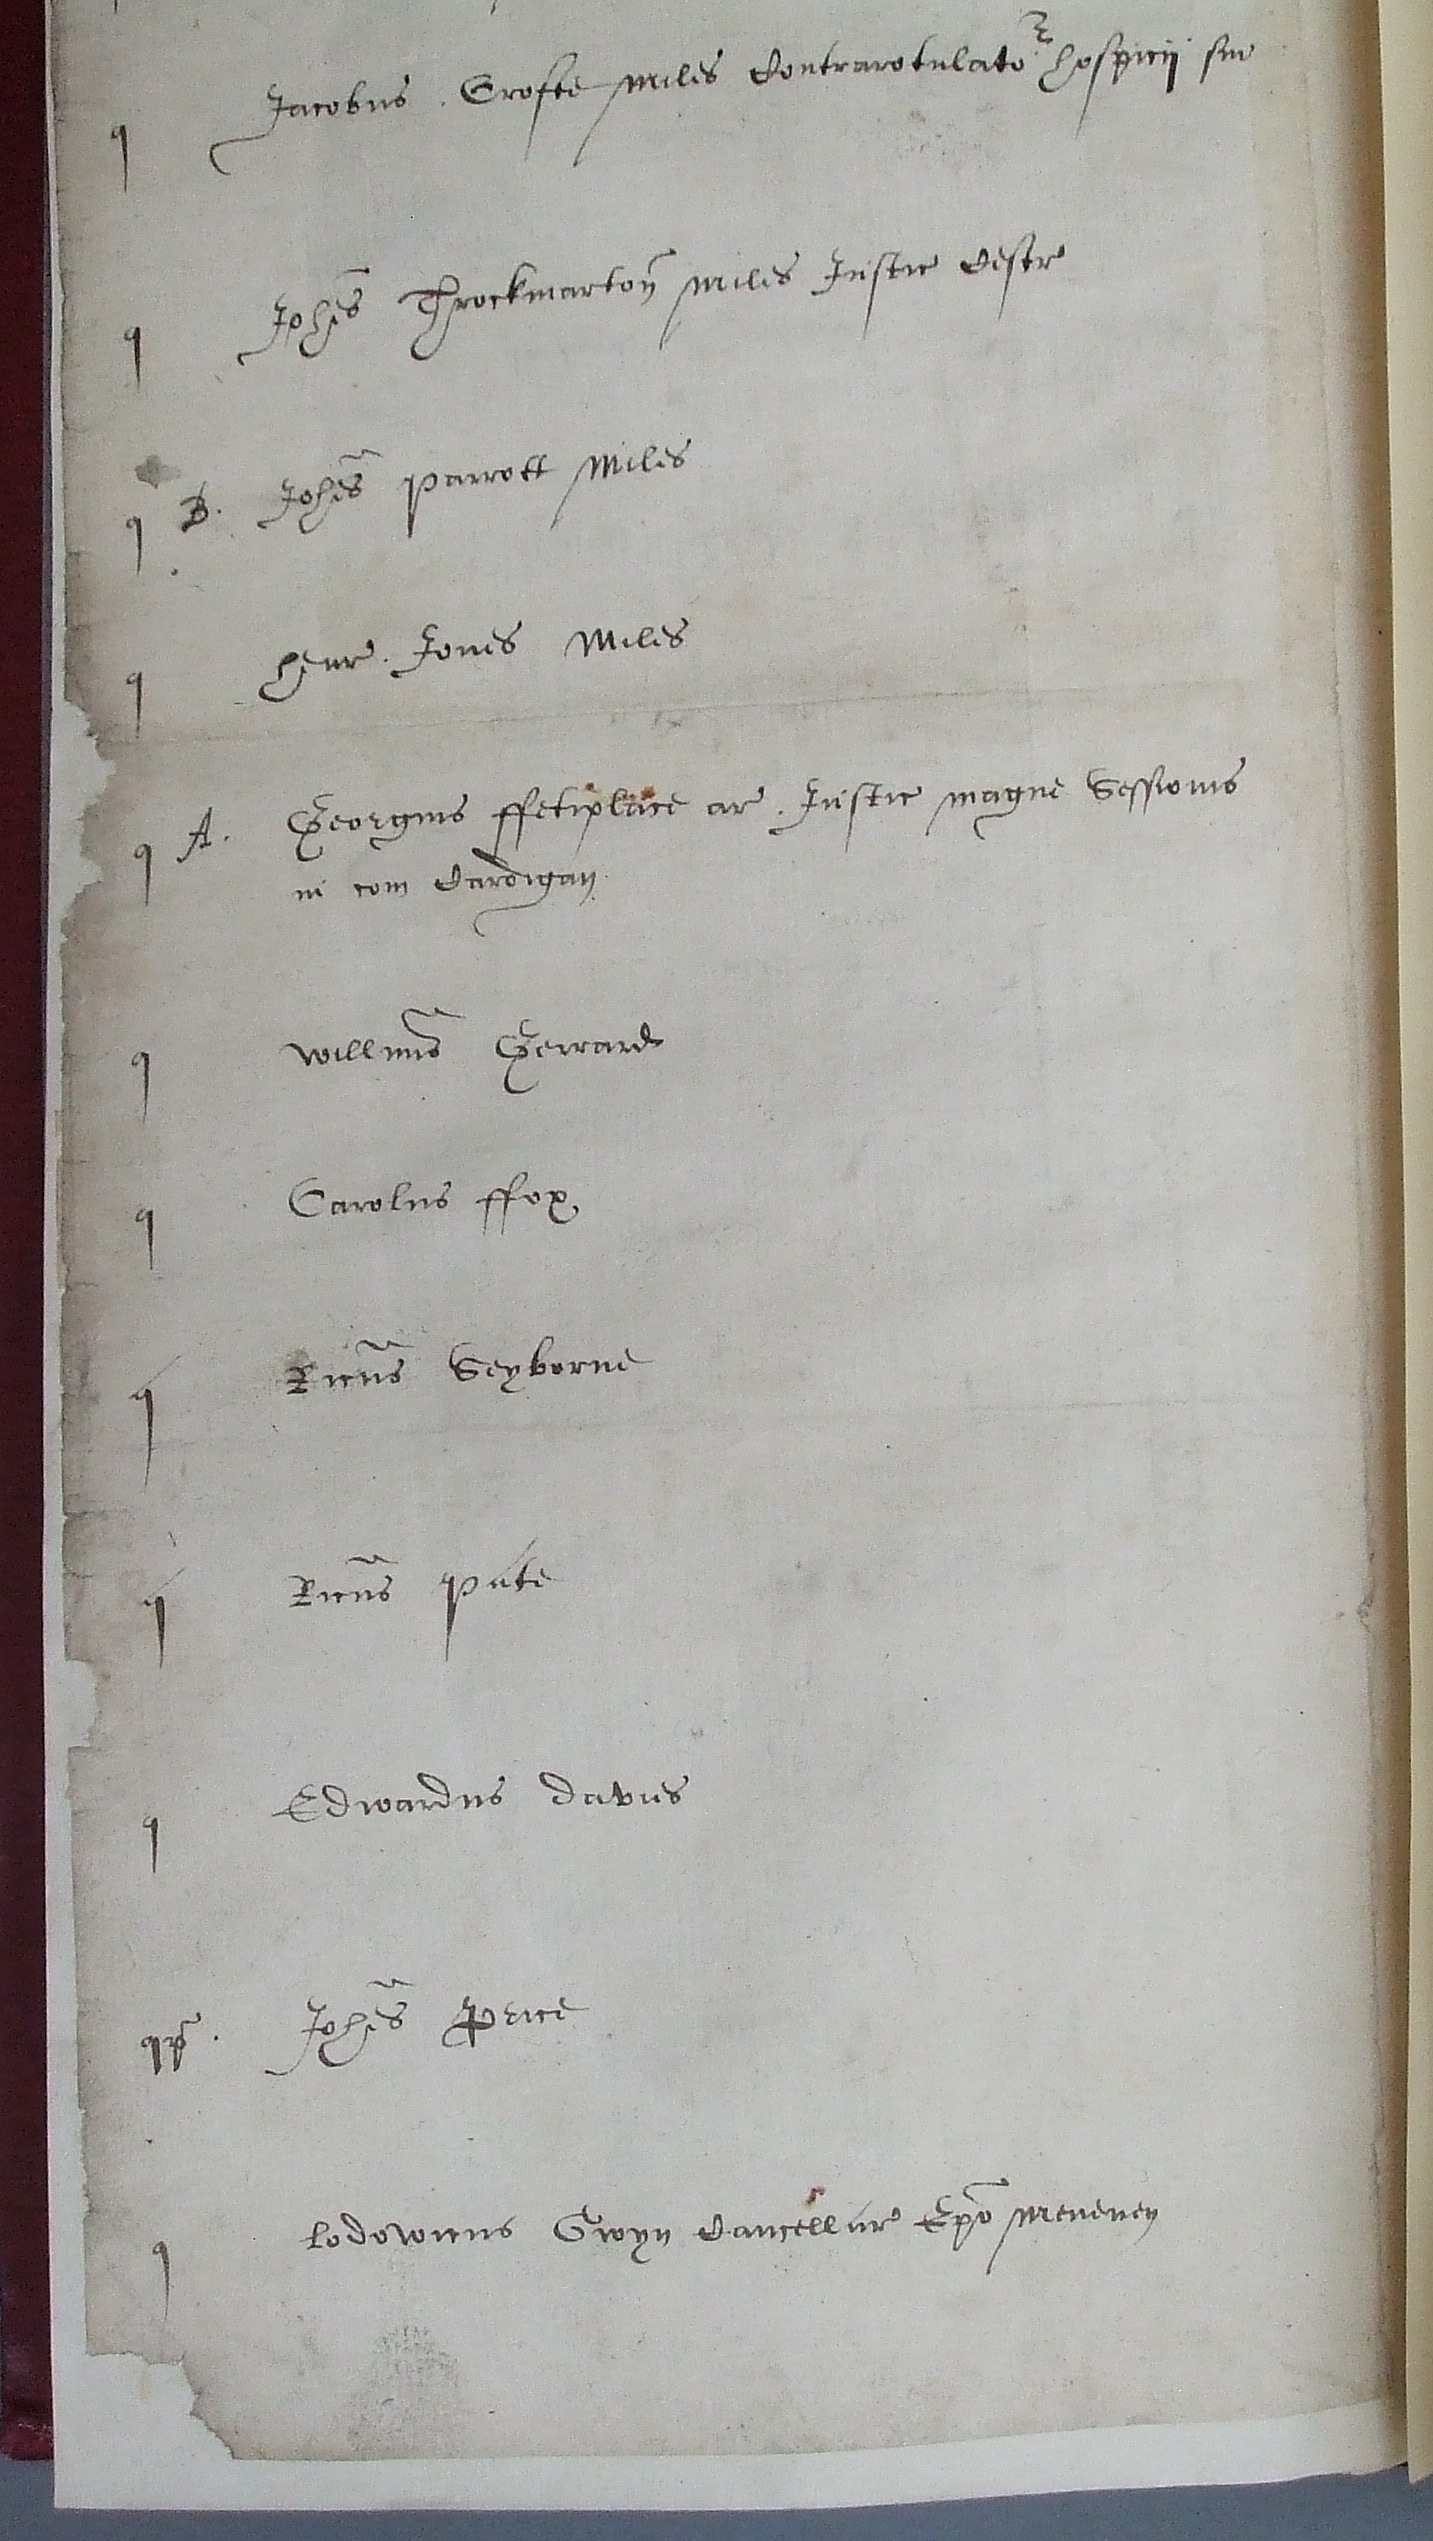 q Jacobus Crofte miles Contrarotulator hospicij sui
q Johes Throckmarton miles Justic Cestr
q B. Johes Parrott Miles
q Henr. Jones Miles
q A. Georgius ffetiplace ar. Justic magne Sessionis
in com Cardigan.
q Willmus Gerrard
q Carolus ffox
q Ricus Seyborne
q Ricus Pate
q Edwardus Davies
q Johes Price
q Lodowicus Gwyn Cancellar Epo Meneven